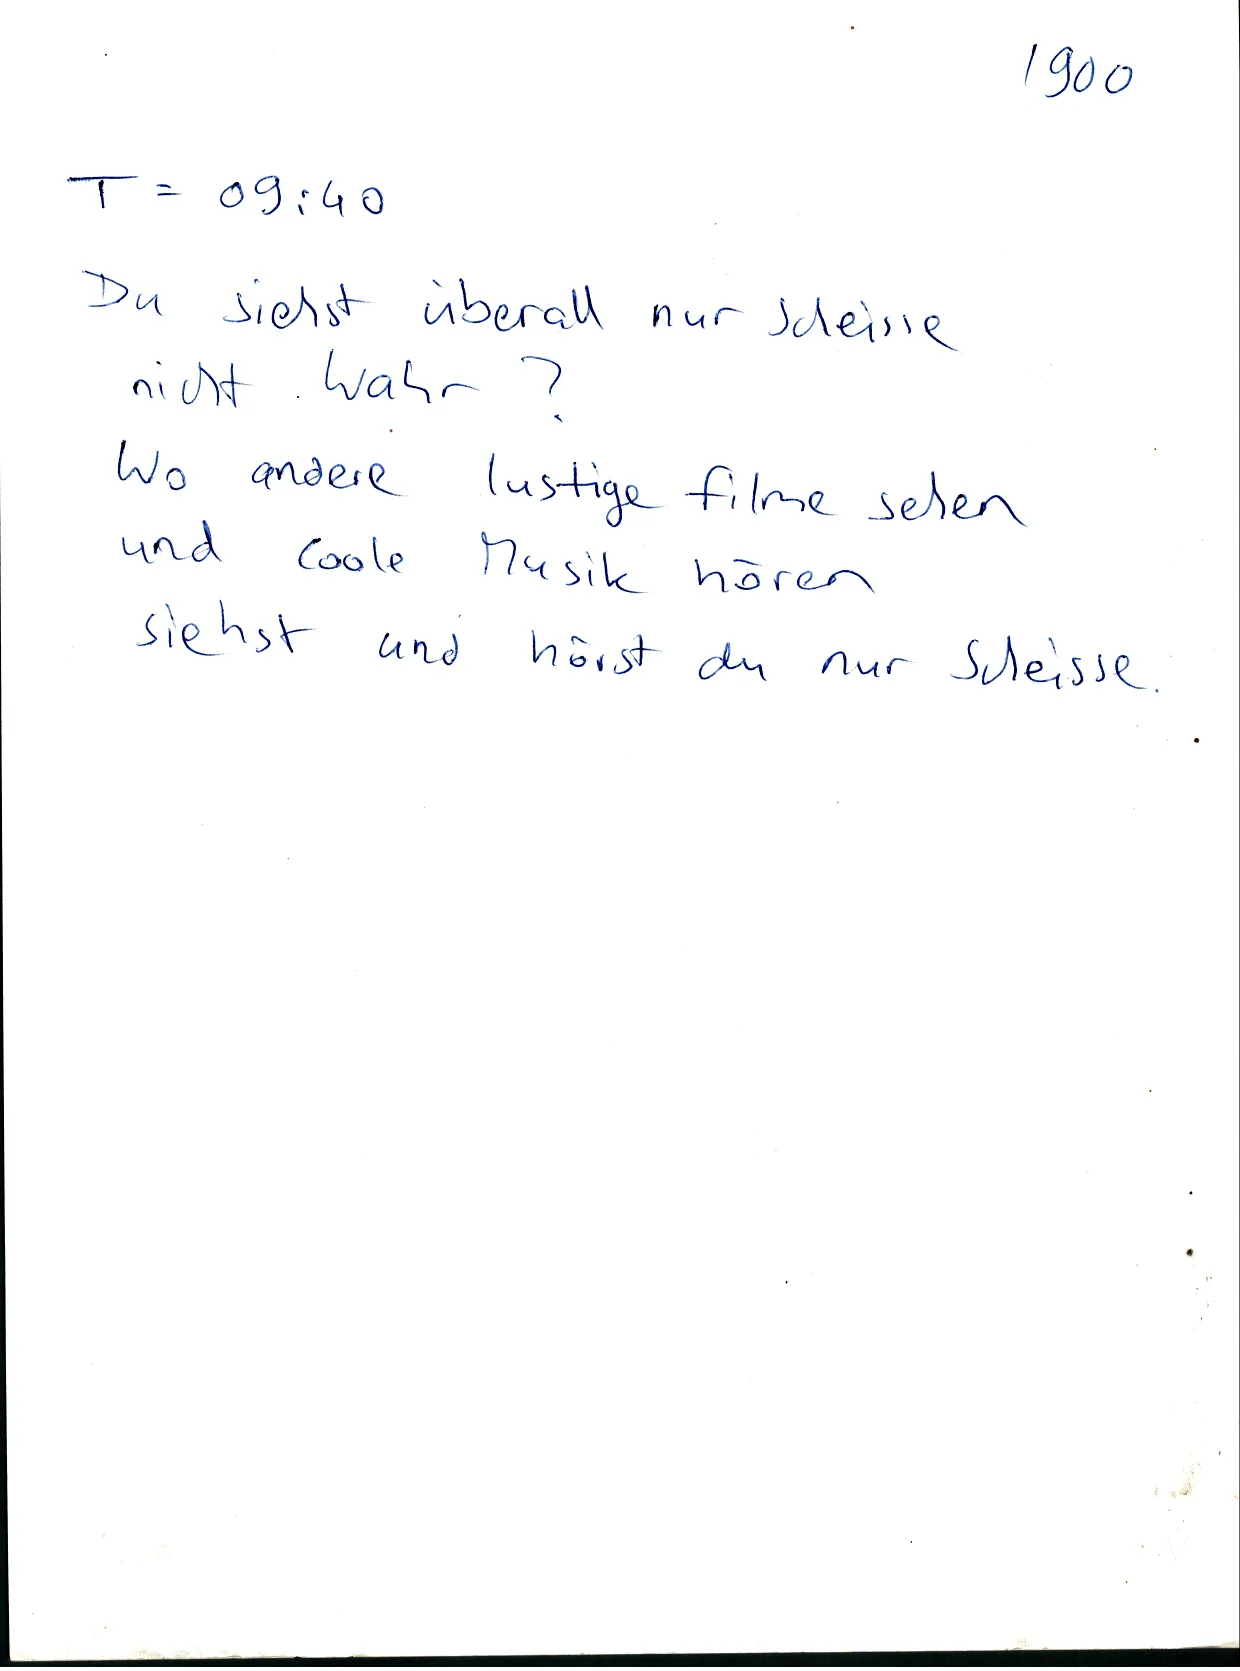 1900
T = 09:40
Du siehst überall nur Scheisse
nicht wahr?
Wo andere lustige Filme sehen
und coole Musik hören
siehst und hörst du nur Scheisse.